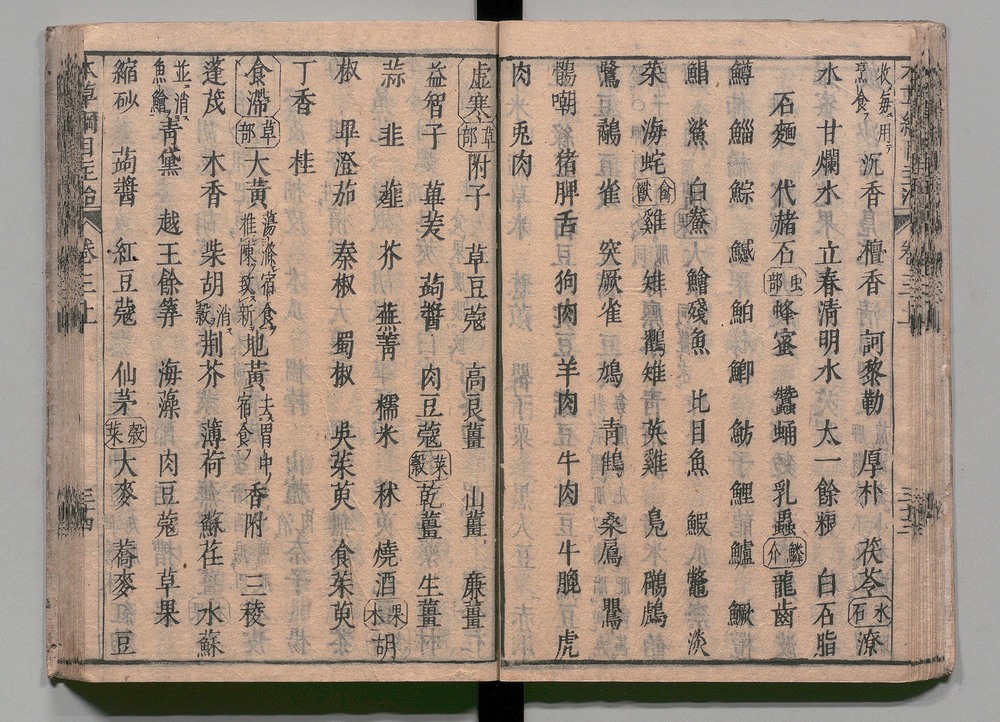 收毎用烹食沉香 檀香 訶黎勒 厚朴 茯苓 水石 潦
水 甘爛水 立春清明水 太一餘粮 白石脂
石麵 代赭石 虫部 蜂蜜 蠶蛹 乳蟲 鱗介 龍齒
鱒 鯔 鯮 鰔 鮊 鯽 魴 鯉 鱸 鱖
鯧 鯊 白鰲 鱠殘魚 比目魚 鰕 鼈 淡
菜 海蛇 禽獸 雞 雉 鸐雉 英雞 鳧 鸊鷉
鷩 鷸 雀 突厥雀 鳩 青䳡 桑鳸 鸎
鶻嘲 猪脾舌 狗肉 羊肉 牛肉 牛䏰 虎
肉 兎肉
虚寒 草部 附子 草豆蔻 高良薑 山薑 廉薑
益智子 蓽茇 蒟醬 肉豆蔻 菜穀 乾薑 生薑
蒜 韭 薤 芥 蕪菁 糯米 秫 燒酒 果木 胡
椒 畢澄茄 秦椒 蜀椒 吳茱萸 食茱萸
丁香 桂
食滯 草部 大黃 蕩滌宿食推陳致新 地黃 去胃中宿食 香附 三稜
蓬茂 木香 柴胡 消穀 荆芥 薄荷 蘇荏 水蘇
並消魚鱠 青黛 越王餘筭 海藻 肉豆蔻 草果
縮砂 蒟醬 紅豆蔻 仙茅 穀菜 大麥 蕎麥 豆
本草綱目主治 卷三上 三十四